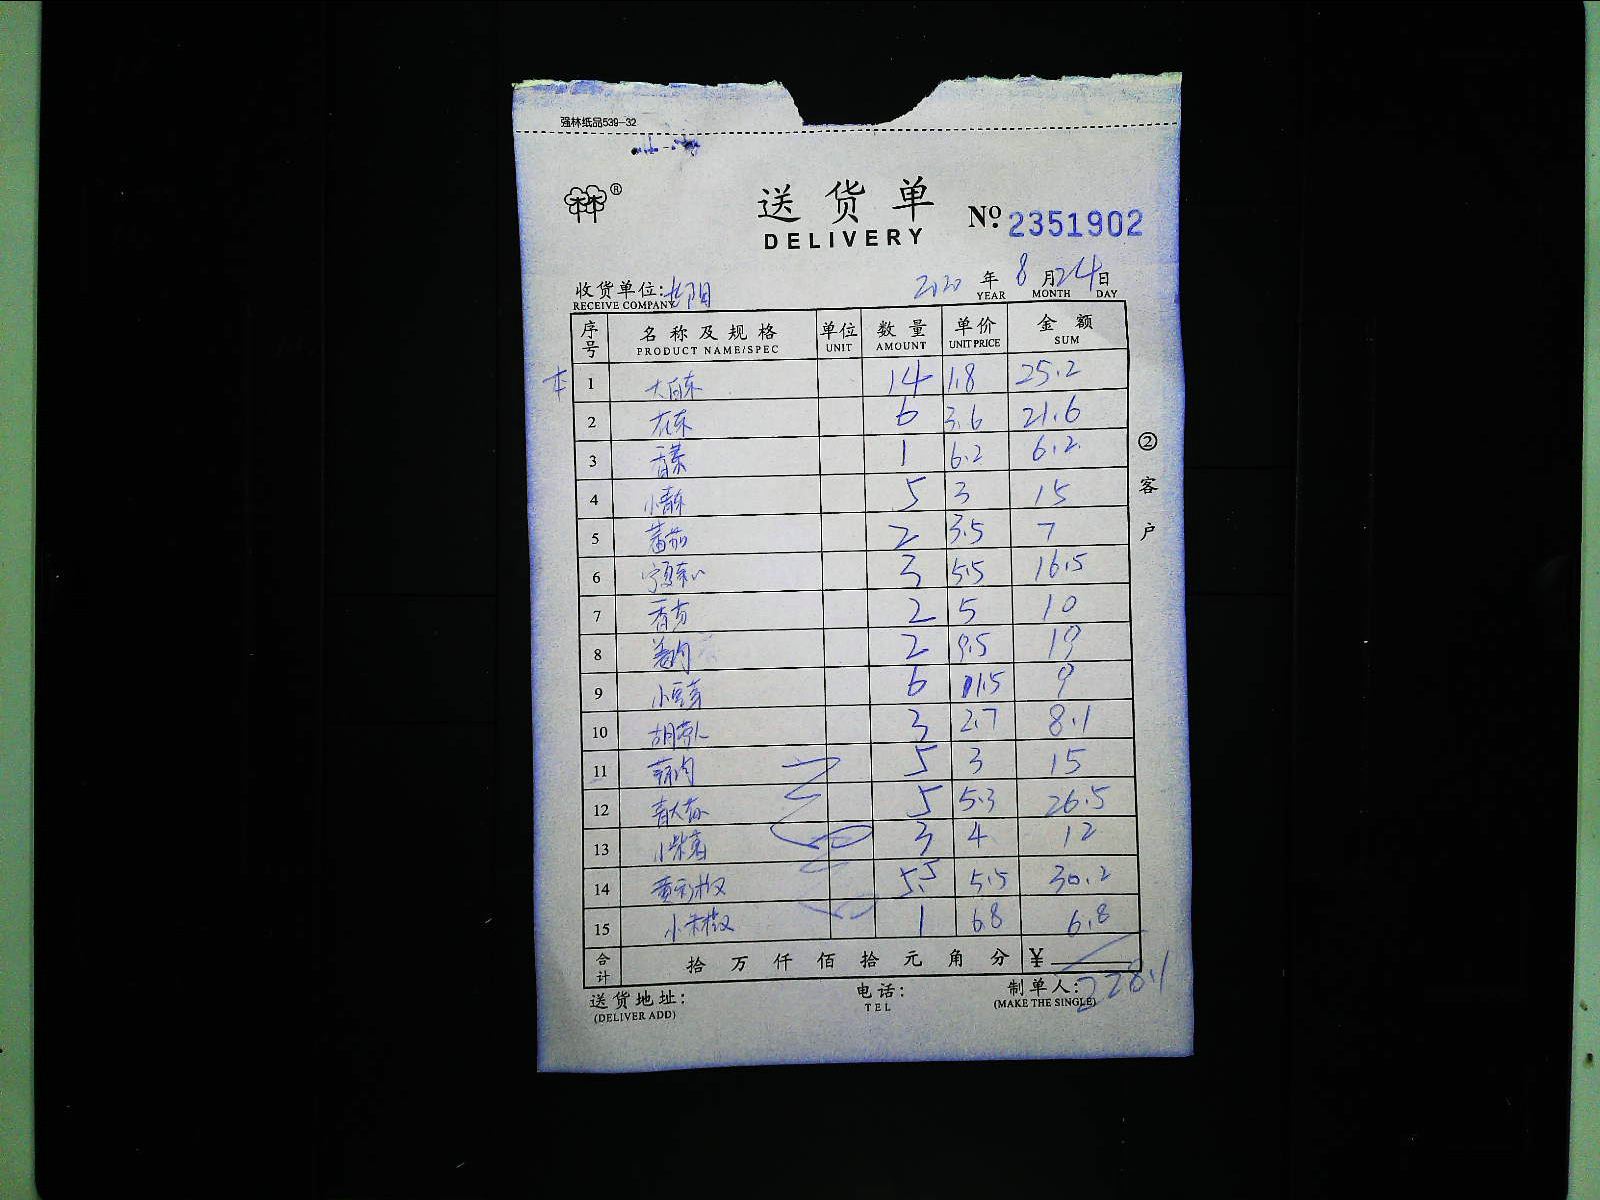 强林纸品539-32
送货单
DELIVERY
№ 2351902
收货单位:
RECEIVE COMPANY
2020 年 8 月 24 日
YEAR MONTH DAY
序号 名称及规格 单位 数量 单价 金额
PRODUCT NAME/SPEC UNIT AMOUNT UNIT PRICE SUM
1 大白菜 14 1.8 25.2
2 花菜 6 3.6 21.6
3 香菜 1 6.2 6.2
4 小青菜 5 3 15
5 蕃茄 2 3.5 7
6 宁夏菜心 3 5.5 16.5
7 香芹 2 5 10
8 姜肉 2 9.5 19
9 小豆芽 6 1.5 9
10 胡萝卜 3 2.7 8.1
11 5 3 15
12 青大 5 5.3 26.5
13 小 3 4 12
14 黄彩椒 5.5 5.5 30.2
15 小米椒 1 6.8 6.8
合计 拾万仟佰拾元角分 ¥
228.1
送货地址: 电话: 制单人:
(DELIVER ADD) TEL (MAKE THE SINGLE)
②客户